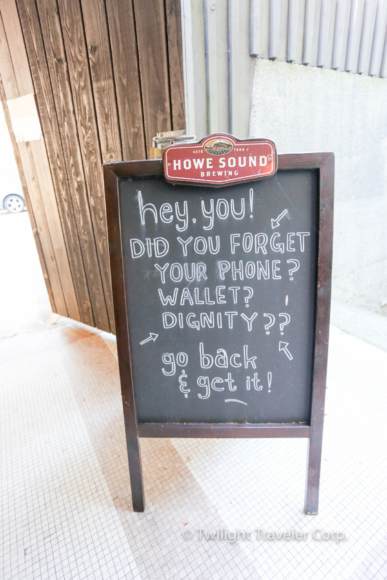 HOWE SOUND
BREWING
hey, you!
DID YOU FORGET
YOUR PHONE?
WALLET?
DIGNITY??
go back
& get it!
© Twilight Traveler Corp.